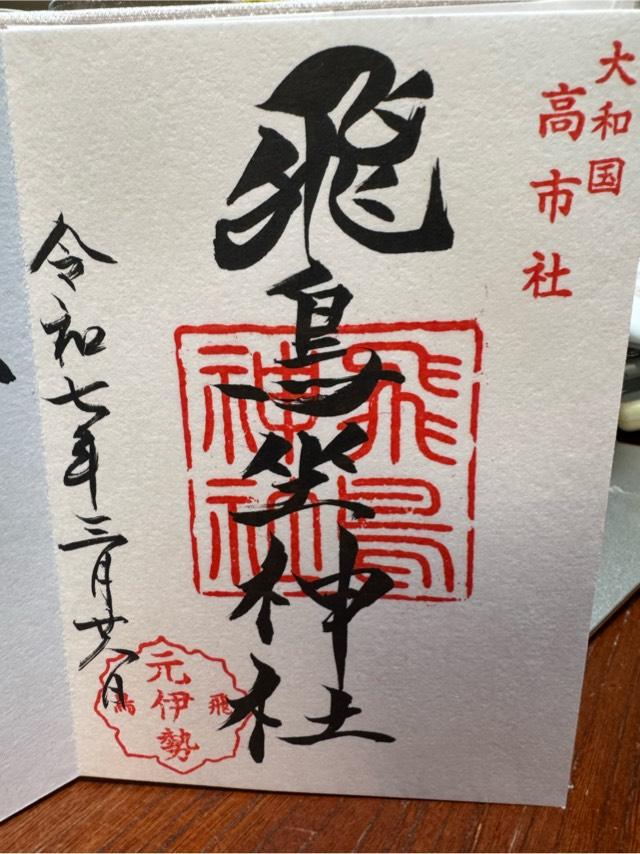 大和国
高市社
飛鳥坐神社
飛鳥
神社
令和七年三月廿八日
飛
元伊勢
鳥